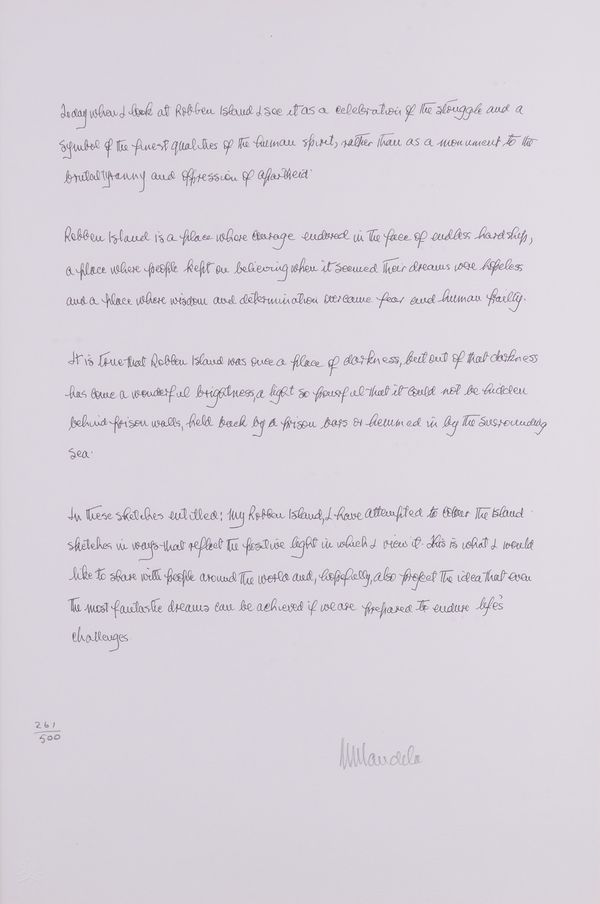 Today when I look at Robben Island I see it as a celebration of the struggle and a
symbol of the finest qualities of the human spirit, rather than as a monument to the
brutal tyranny and oppression of apartheid.
Robben Island is a place where courage endured in the face of endless hardship,
a place where people kept on believing when it seemed their dreams were hopeless
and a place where wisdom and determination overcame fear and human frailty.
It is true that Robben Island was once a place of darkness, but out of that darkness
has come a wonderful brightness, a light so powerful that it could not be hidden
behind prison walls, held back by a prison bars or hemmed in by the surrounding
sea.
In these sketches entitled; My Robben Island, I have attempted to colour the Island
sketches in ways that reflect the positive light in which I view it. This is what I would
like to share with people around the world and, hopefully, also project the idea that even
the most fantastic dreams can be achieved if we are prepared to endure life's
challenges.
261
500
NMandela